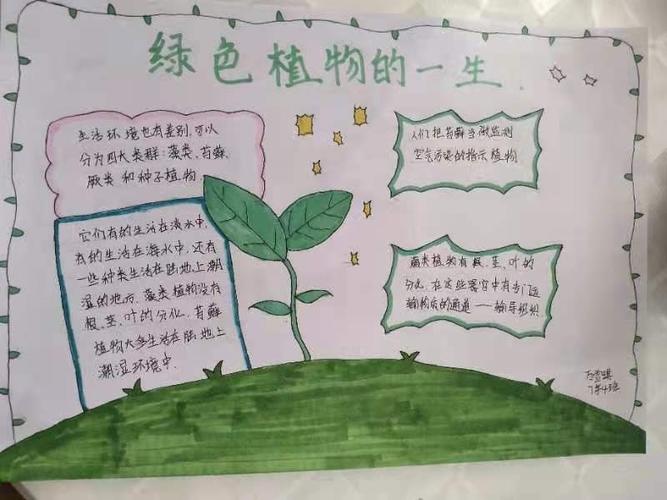 绿色植物的一生
生活环境也有差别,可以
分为四大类群:藻类、苔藓、
厥类 和种子植物.
它们有的生活在淡水中,
有的生活在海水中,还有
一些种类生活在陆地上潮
湿的地方. 藻类植物没有
根、茎、叶的分化, 苔藓
植物大多生活在陆地上
潮湿环境中.
人们把苔藓当做监测
空气污染的指示植物.
植物有根、茎、叶的
分化, 在这些器官中有专门运
输物质的通道——输导组织
7年4班